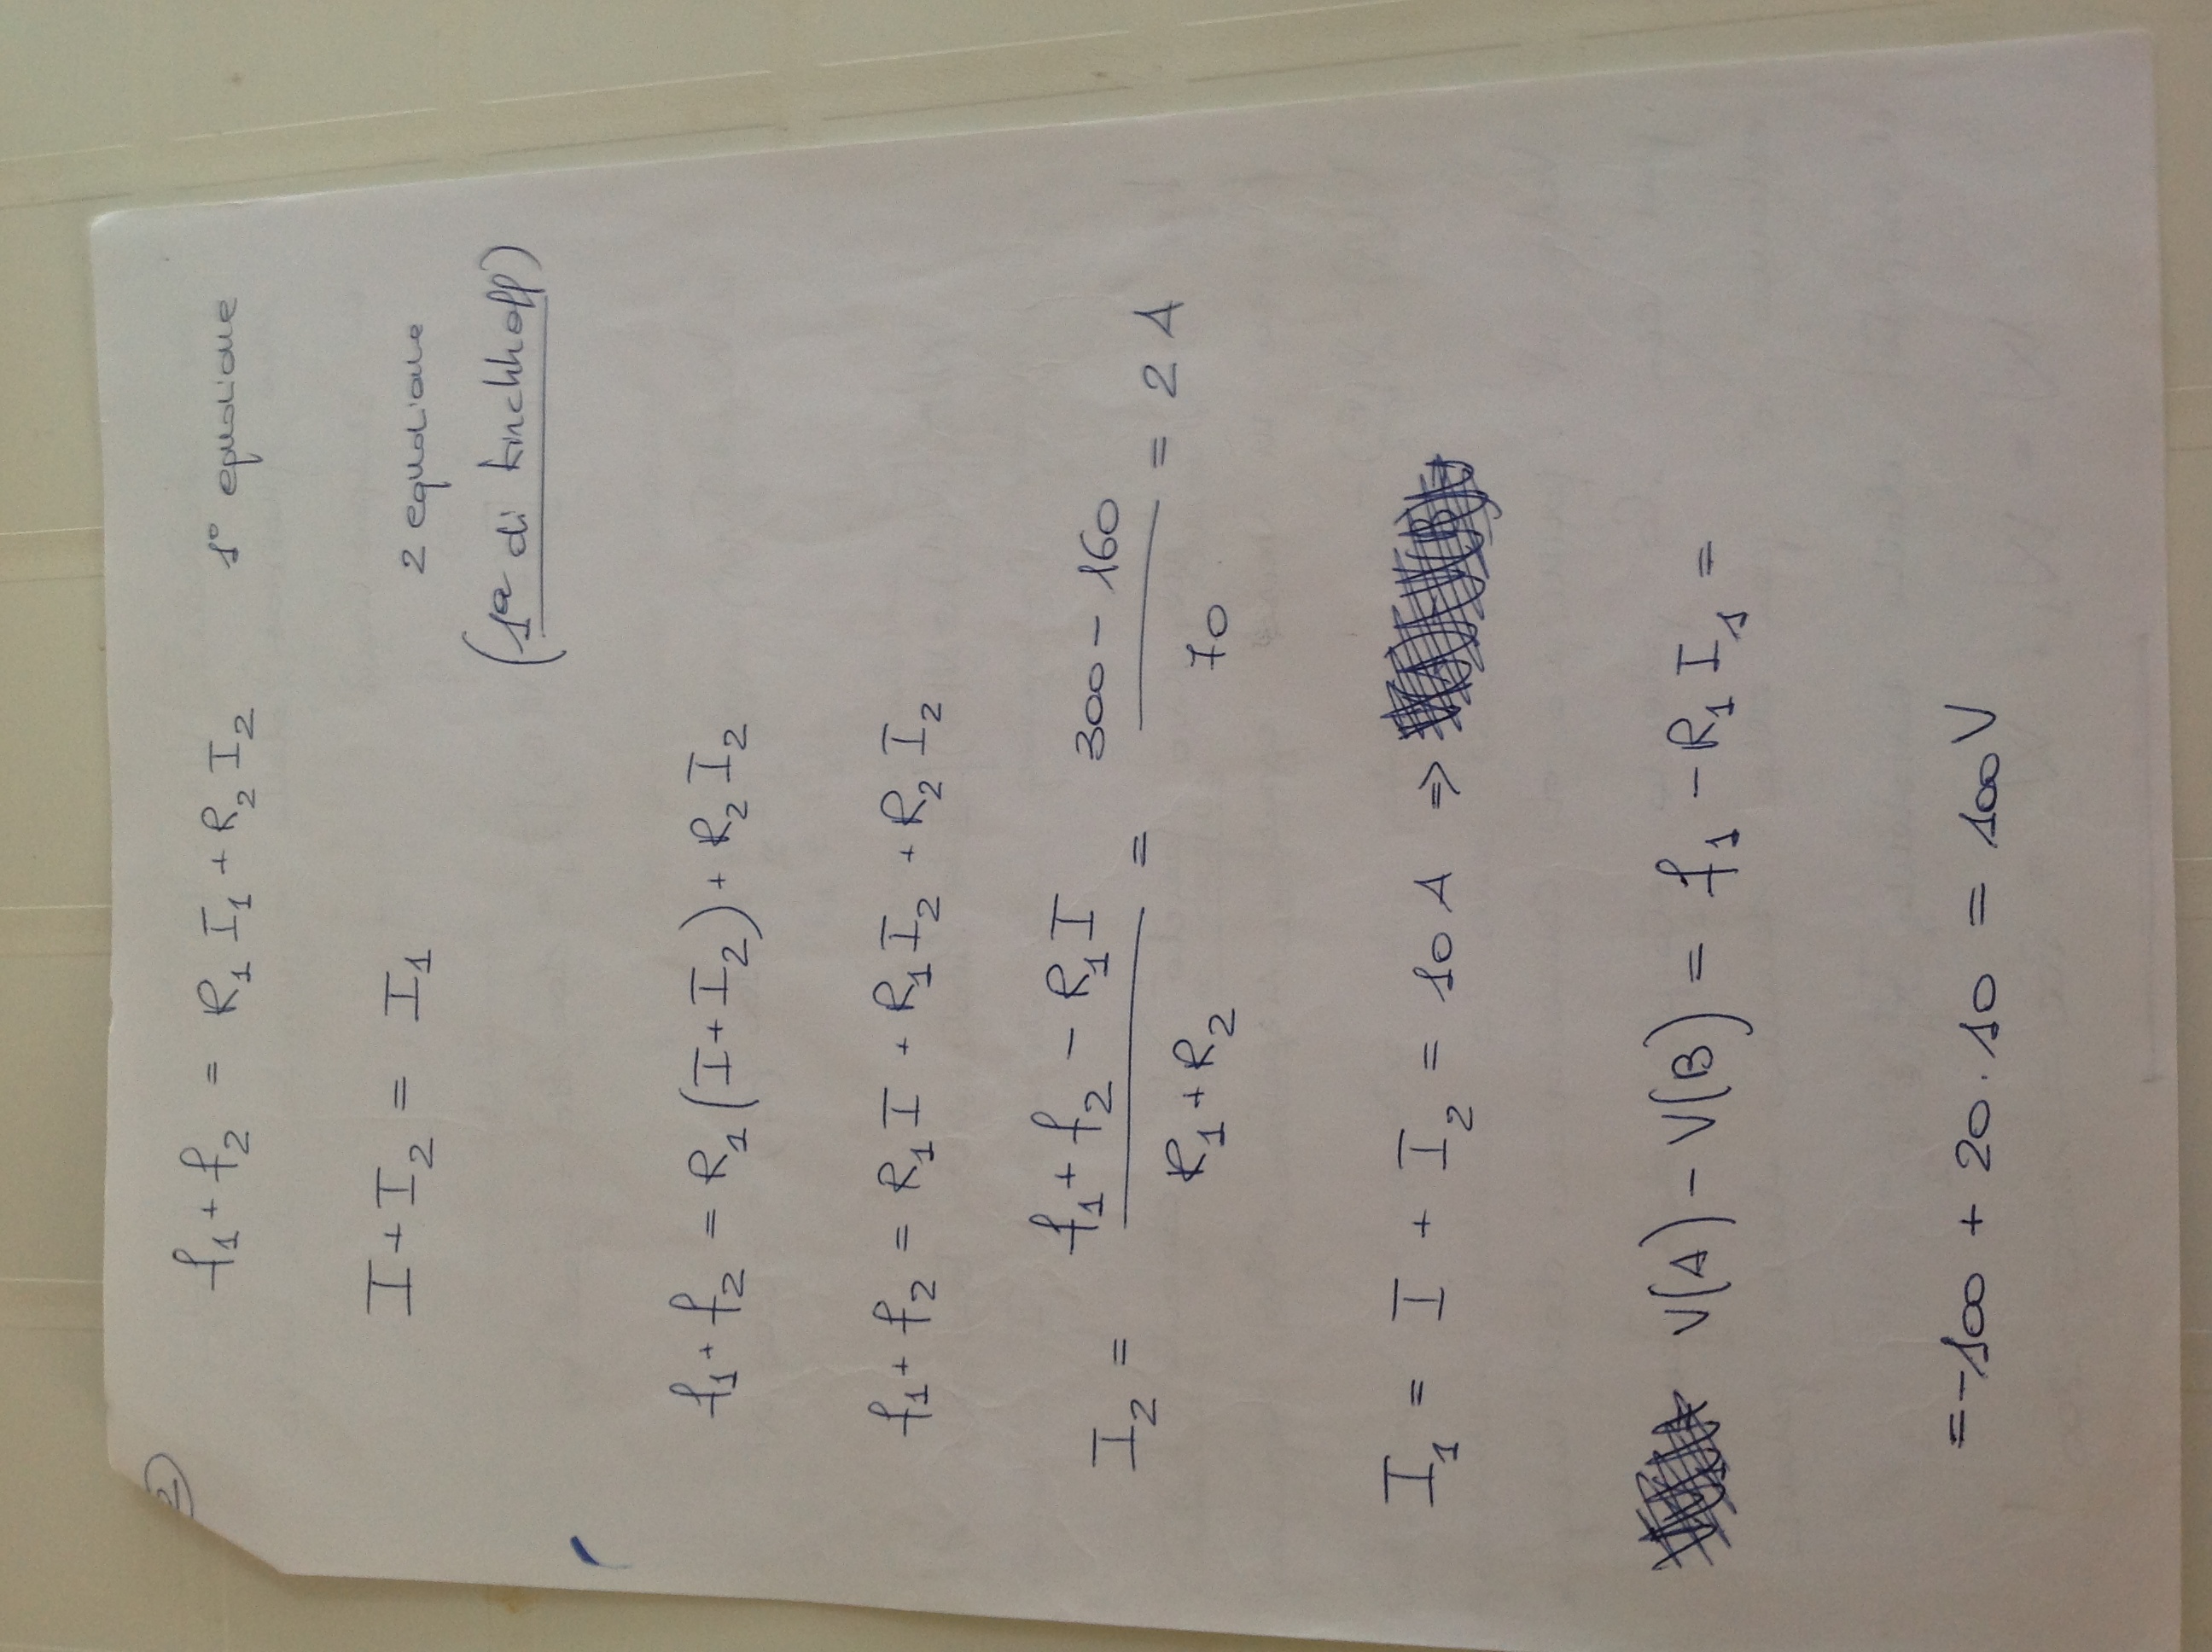 2
f₁ + f₂ = R₁ I₁ + R₂ I₂ 1° equazione
I + I₂ = I₁ 2 equazione
(1ª di Kirchhoff)
f₁ + f₂ = R₁ (I + I₂) + R₂ I₂
f₁ + f₂ = R₁ I + R₁ I₂ + R₂ I₂
I₂ = (f₁ + f₂ - R₁ I) / (R₁ + R₂) = (300 - 160) / 70 = 2 A
I₁ = I + I₂ = 10 A ⇒
V(A) - V(B) = f₁ - R₁ I₁ =
= -100 + 20 · 10 = 100 V